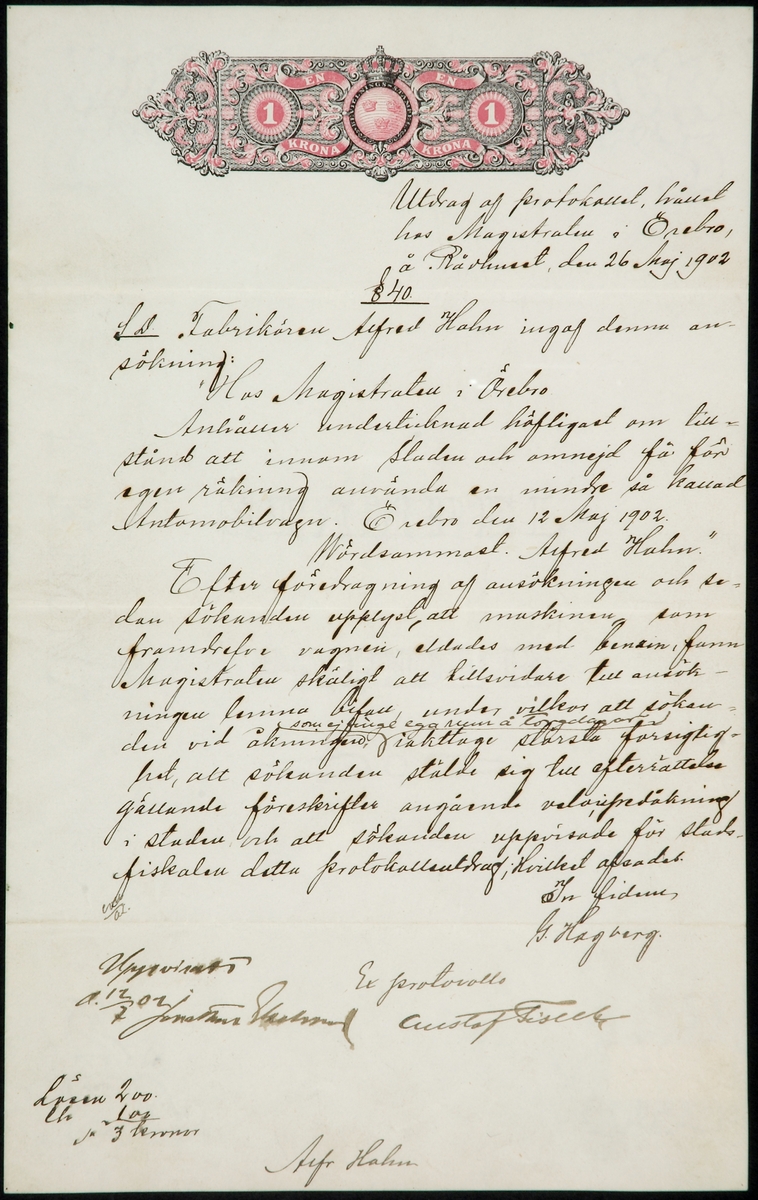 EN EN
1 1
KRONA KRONA
Utdrag af protokollet, hållet
hos Magistraten i Örebro,
å Rådhuset, den 26 Maj 1902
§ 40.
S D Fabrikören Alfred Hahn ingaf denna an-
sökning:
"Hos Magistraten i Örebro
Anhåller undertecknad höfligast om till-
stånd att innom staden och omnejd få för
egen räkning använda en mindre så kallad
Automobilvagn. Örebro den 12 Maj 1902.
Wördsammast. Alfred Hahn."
Efter föredragning af ansökningen och se-
dan sökanden upplyst, att maskinen, som
framdrefve vagnen, eldades med bensin, fann
Magistraten skäligt att tillsvidare till ansök-
ningen lemna bifall, under vilkor att sökan-
som ej finge ega rum å torgdagar
den vid åkningen, iakttoge största försigtig-
het, att sökanden stälde sig till efterrättelse
gällande föreskrifter angående velocipedåkning
i staden och att sökanden uppvisade för stads-
fiskalen detta protokollsutdrag; hvilket afsades.
In fidem,
G. Hagberg.
Uppvisats
d. 12/7 02
Ex protocollo
Gustaf
Lösen 2 00.
Ch 1 00
3 kronor
Alfr Hahn